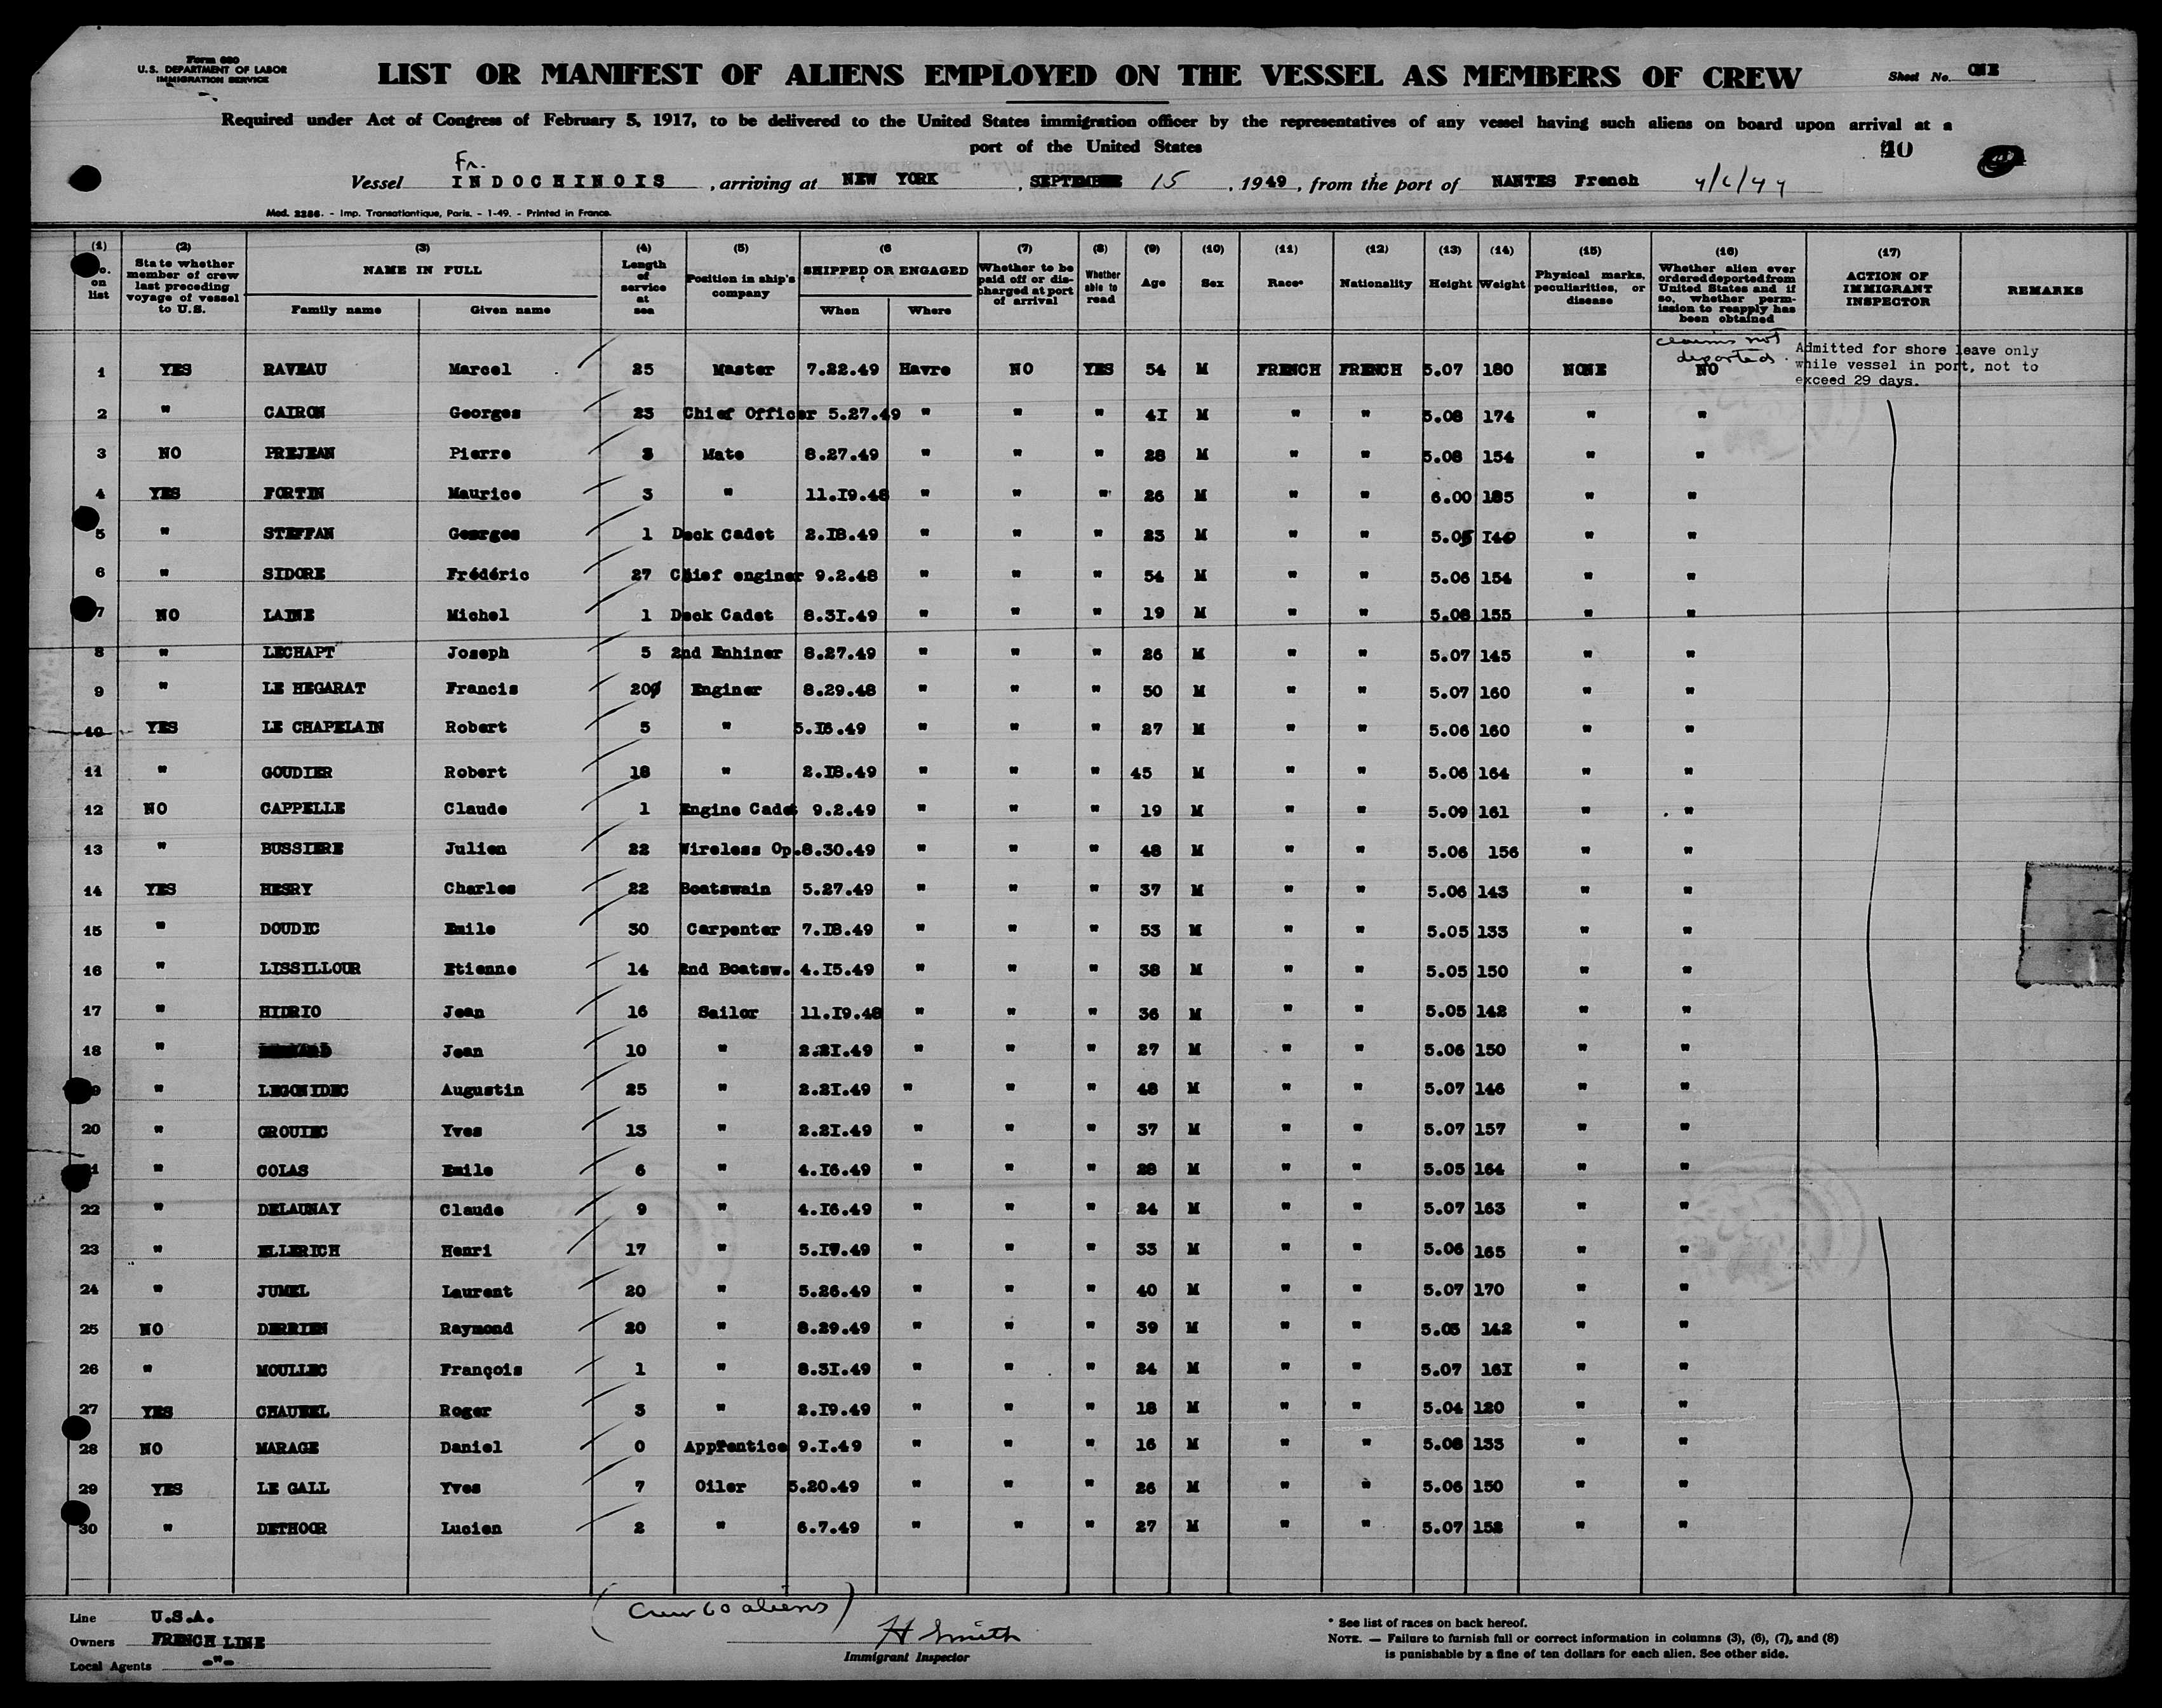 Form 680
U.S. DEPARTMENT OF LABOR
IMMIGRATION SERVICE
LIST OR MANIFEST OF ALIENS EMPLOYED ON THE VESSEL AS MEMBERS OF CREW
Sheet No. ONE
Required under Act of Congress of February 5, 1917, to be delivered to the United States immigration officer by the representatives of any vessel having such aliens on board upon arrival at a
port of the United States
Fr.
Vessel INDOCHINOIS , arriving at NEW YORK , SEPTEMBER 15 , 1949 , from the port of NANTES French
Mod. 2286. - Imp. Transatlantique, Paris. - 1-49. - Printed in France.
(1) (2) (3) (4) (5) (6 (7) (8) (9) (10) (11) (12) (13) (14) (15) (16) (17)
No. on list State whether member of crew last preceding voyage of vessel to U.S. NAME IN FULL Family name Given name Length of service at sea Position in ship's company SHIPPED OR ENGAGED When Where Whether to be paid off or discharged at port of arrival Whether able to read Age Sex Race* Nationality Height Weight Physical marks, peculiarities, or disease Whether alien ever ordered deported from United States and if so, whether permission to reapply has been obtained ACTION OF IMMIGRANT INSPECTOR REMARKS
claims not
deported.
Admitted for shore leave only
while vessel in port, not to
exceed 29 days.
1 YES RAVEAU Marcel 25 Master 7.22.49 Havre NO YES 54 M FRENCH FRENCH 5.07 180 NONE NO
2 " CAIRON Georges 23 Chief Officer 5.27.49 " " " 41 M " " 5.08 174 " "
3 NO PREJEAN Pierre 3 Mate 8.27.49 " " " 28 M " " 5.08 154 " "
4 YES FORTIN Maurice 3 " 11.19.48 " " " 26 M " " 6.00 185 " "
5 " STEFFAN Georges 1 Deck Cadet 2.18.49 " " " 23 M " " 5.05 140 " "
6 " SIDORE Frédéric 27 Chief enginer 9.2.48 " " " 54 M " " 5.06 154 " "
7 NO LAINE Michel 1 Deck Cadet 8.31.49 " " " 19 M " " 5.08 155 " "
8 " LECHAPT Joseph 5 2nd Enhiner 8.27.49 " " " 26 M " " 5.07 145 " "
9 " LE HEGARAT Francis 20 Enginer 8.29.48 " " " 50 M " " 5.07 160 " "
10 YES LE CHAPELAIN Robert 5 " 5.16.49 " " " 27 M " " 5.06 160 " "
11 " GOUDIER Robert 18 " 2.18.49 " " " 45 M " " 5.06 164 " "
12 NO CAPPELLE Claude 1 Engine Cadet 9.2.49 " " " 19 M " " 5.09 161 " "
13 " BUSSIERE Julien 22 Wireless Op. 8.30.49 " " " 48 M " " 5.06 156 " "
14 YES HESRY Charles 22 Boatswain 5.27.49 " " " 37 M " " 5.06 143 " "
15 " DOUDIC Emile 30 Carpenter 7.18.49 " " " 53 M " " 5.05 133 " "
16 " LISSILLOUR Etienne 14 2nd Boatsw. 4.15.49 " " " 38 M " " 5.05 150 " "
17 " HIDRIO Jean 16 Sailor 11.19.48 " " " 36 M " " 5.05 142 " "
18 " Jean 10 " 2.21.49 " " " 27 M " " 5.06 150 " "
19 " LEGONIDEC Augustin 25 " 2.21.49 " " " 48 M " " 5.07 146 " "
20 " GROUIEC Yves 13 " 2.21.49 " " " 37 M " " 5.07 157 " "
21 " COLAS Emile 6 " 4.16.49 " " " 28 M " " 5.05 164 " "
22 " DELAUNAY Claude 9 " 4.16.49 " " " 24 M " " 5.07 163 " "
23 " ELLERICH Henri 17 " 5.17.49 " " " 33 M " " 5.06 165 " "
24 " JUMEL Laurent 20 " 5.26.49 " " " 40 M " " 5.07 170 " "
25 NO DERRIEN Raymond 20 " 8.29.49 " " " 39 M " " 5.05 142 " "
26 " MOULLEC François 1 " 8.31.49 " " " 24 M " " 5.07 161 " "
27 YES CHAUVEL Roger 3 " 2.19.49 " " " 18 M " " 5.04 120 " "
28 NO MARAGE Daniel 0 Apprentice 9.1.49 " " " 16 M " " 5.08 133 " "
29 YES LE GALL Yves 7 Oiler 5.20.49 " " " 26 M " " 5.06 150 " "
30 " DETHOOR Lucien 2 " 6.7.49 " " " 27 M " " 5.07 152 " "
(Crew 60 aliens)
Line U.S.A.
Owners FRENCH LINE
Local Agents -"-
H Smith
Immigrant Inspector
* See list of races on back hereof.
NOTE. — Failure to furnish full or correct information in columns (3), (6), (7), and (8)
is punishable by a fine of ten dollars for each alien. See other side.